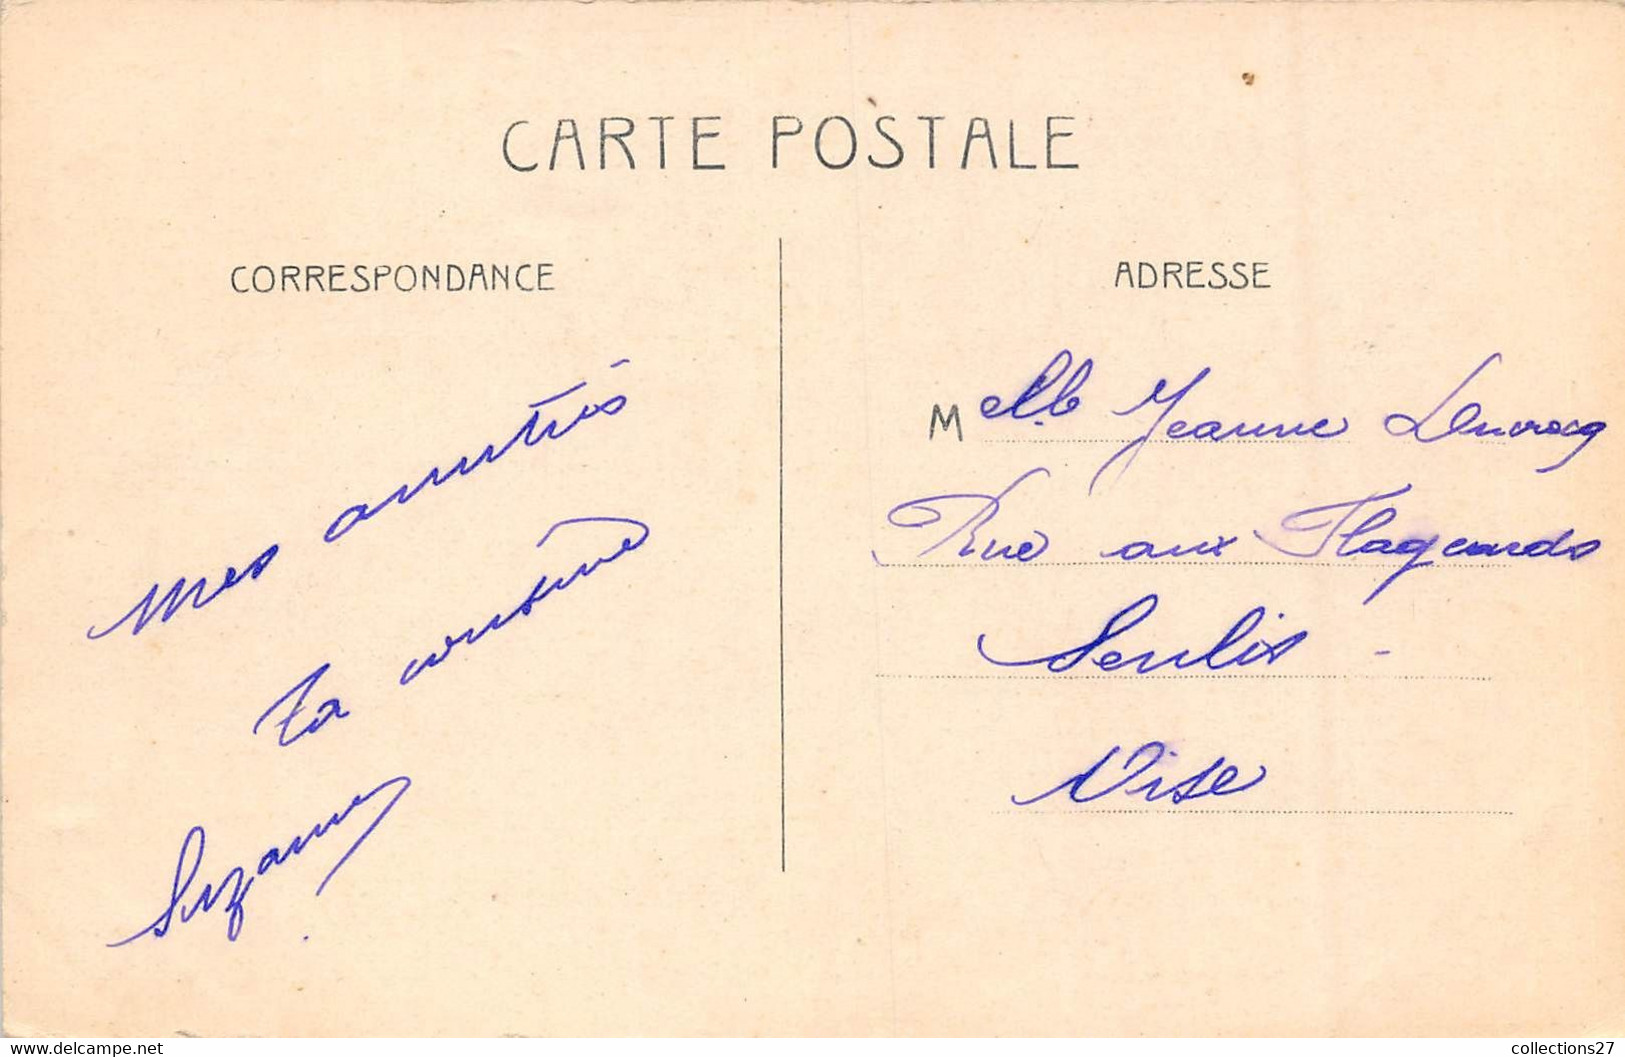 CARTE POSTALE
CORRESPONDANCE
Mes amitiés
Ta cousine
Suzanne
ADRESSE
Melle Jeanne
Rue aux Flageards
Senlis -
Oise
www.delcampe.net
collections27